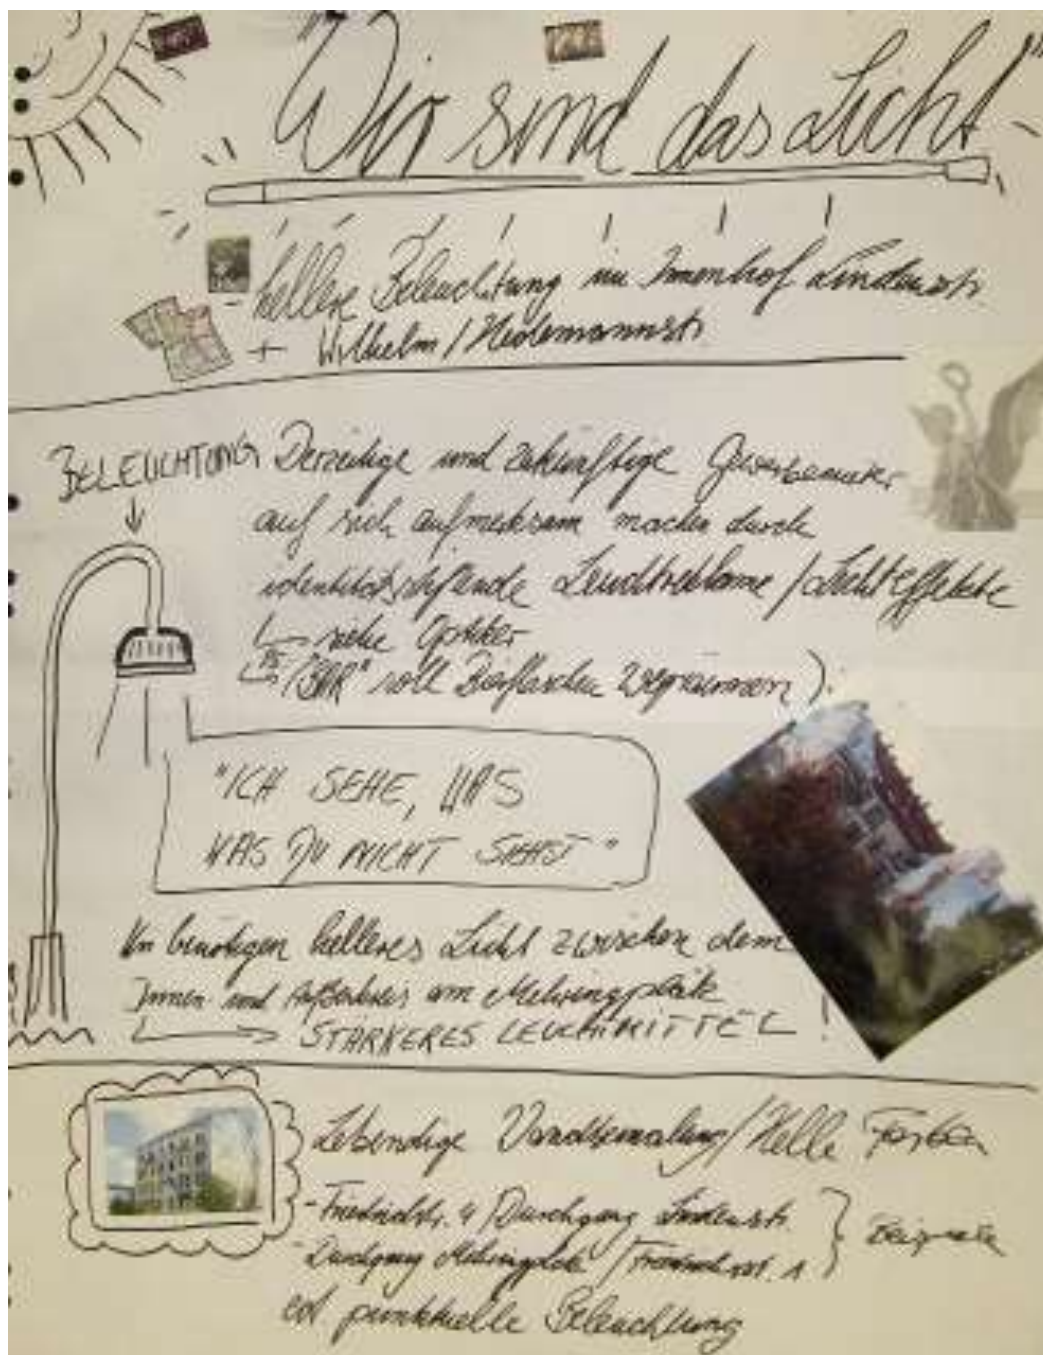 "Wir sind das Licht"
- hellere Beleuchtung im Innenhof Lindenstr.
+ Wilhelm / Hedemannstr.
BELEUCHTUNG
Derzeitige und zukünftige Gewerbemieter
auf sich aufmerksam machen durch
identitätsstiftende Leuchtreklame / Lichteffekte
siehe Optiker
"BAR" soll Bierflaschen wegräumen)
"ICH SEHE, WAS
WAS DU NICHT SIEHST"
Wir benötigen helleres Licht zwischen dem
Innen und Außenkreis am Mehringplatz
STÄRKERES LEUCHTMITTEL
Lebendige Wandbemalung / Helle Farben
- Friedrichstr. 4 / Durchgang Lindenstr.
- Durchgang Mehringplatz / Friedrichstr. 1
Beispiele
evt. punktuelle Beleuchtung